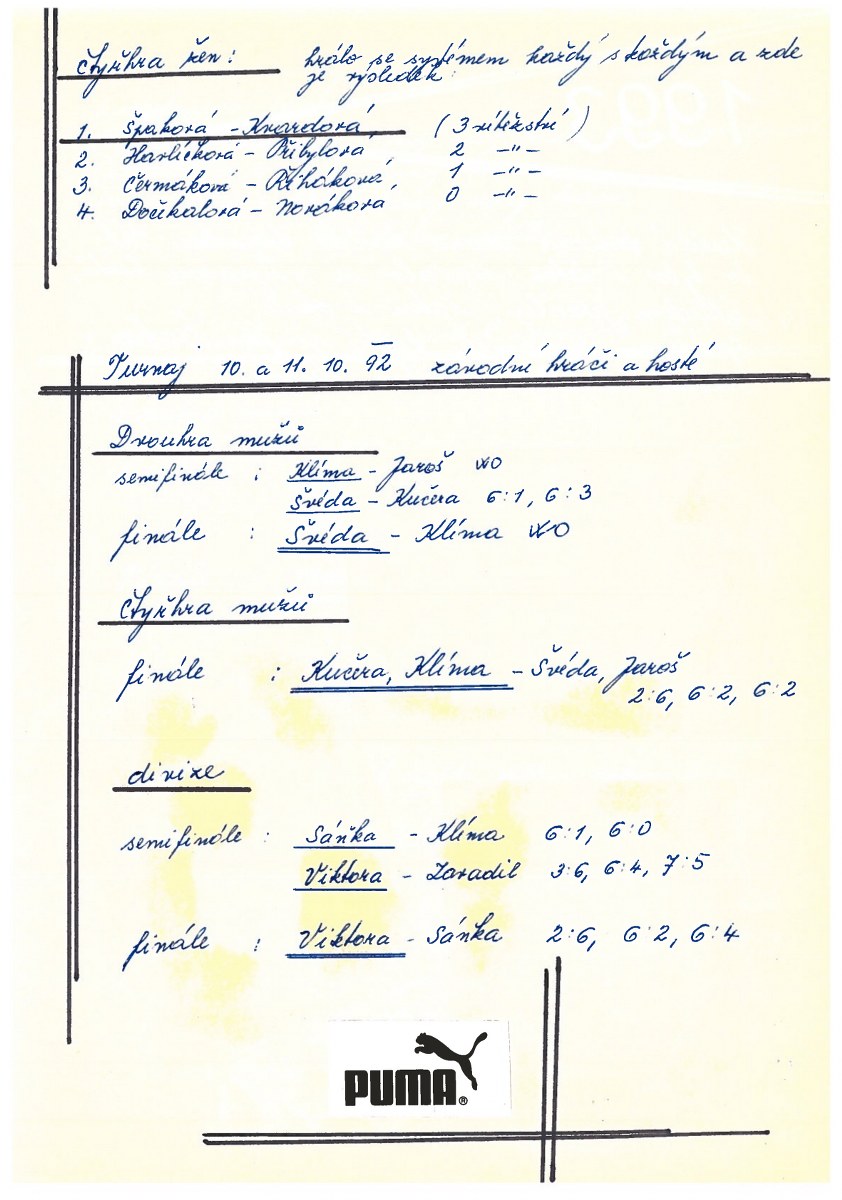 Čtyřhra žen: hrálo se systémem každý s každým a zde
je výsledek:
1. Špaková - Kvardová, (3 vítězství)
2. Havlíčková - Přibylová, 2 -"-
3. Čermáková - Řiháková, 1 -"-
4. Dočkalová - Nováková 0 -"-
Turnaj 10. a 11. 10. 92 závodní hráči a hosté
Dvouhra mužů
semifinále : Klíma - Jaroš WO
Švéda - Kučera 6:1, 6:3
finále : Švéda - Klíma WO
Čtyřhra mužů
finále : Kučera, Klíma - Švéda, Jaroš
2:6, 6:2, 6:2
divize
semifinále : Sáňka - Klíma 6:1, 6:0
Viktora - Zavadil 3:6, 6:4, 7:5
finále : Viktora - Sáňka 2:6, 6:2, 6:4
PUMA®